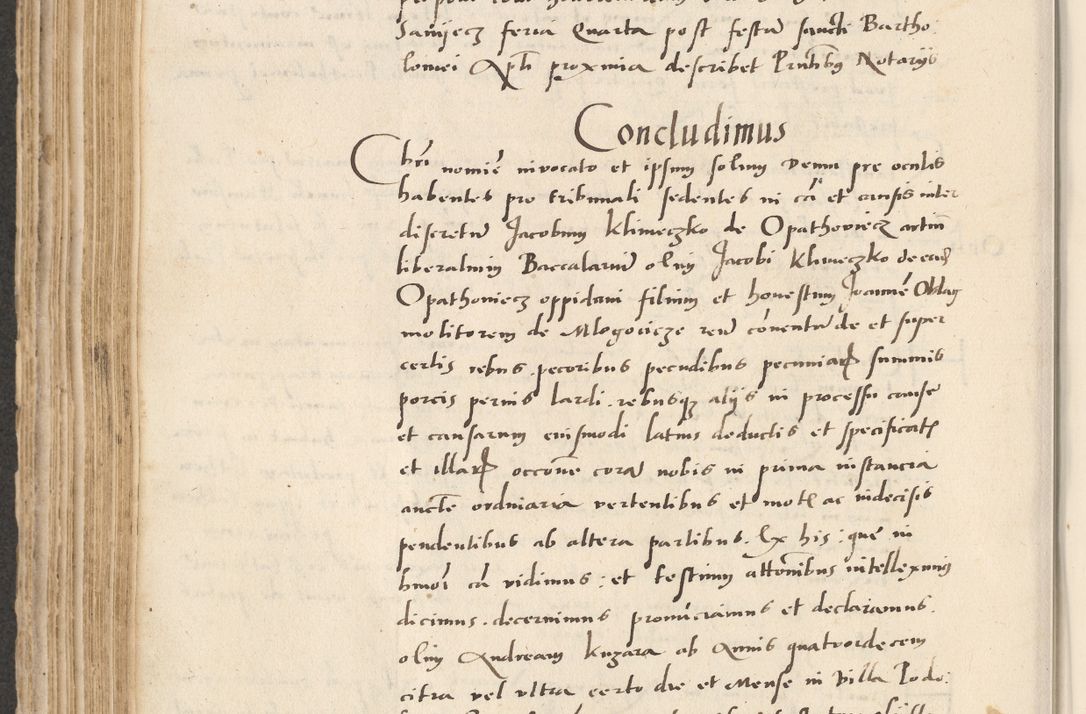 Samyecz feria Quarta post festu sancti Bartho
lomei Apli proxima describet Pntibus Notariis
Concludimus
Chri nomie invocato et ipsum solum Deum pre oculis
habentes pro tribunali sedentes in ca et causis inter
discretu Jacobum Klimeczko de Opathoviecz artiu
liberalium Baccalariu olim Jacobi Klimeczko de ead
Opathoviecz oppidani filium et honestum Joanne Oblag
molitorem de Mlogoscze reu coventu de et super
certis rebus pecoribus pecudibus pecuniar summis
porcis pernis lardi rebusq aliis in processu cause
et causarum eiusmodi latius deductis et specificat
et illar occone cora nobis in prima instancia
aucte ordinaria vertentibus et mot ac indecisis
pendentibus ab altera partibus. Ex his : que in
hmoi ca vidimus : et testium attonibus intelleximus
dicimus . decernimus pronuciamus et declaramus
olim Andream Kuzara ab Annis quatuordecem
citra vel ultra certo die et Mense in Villa Podo: